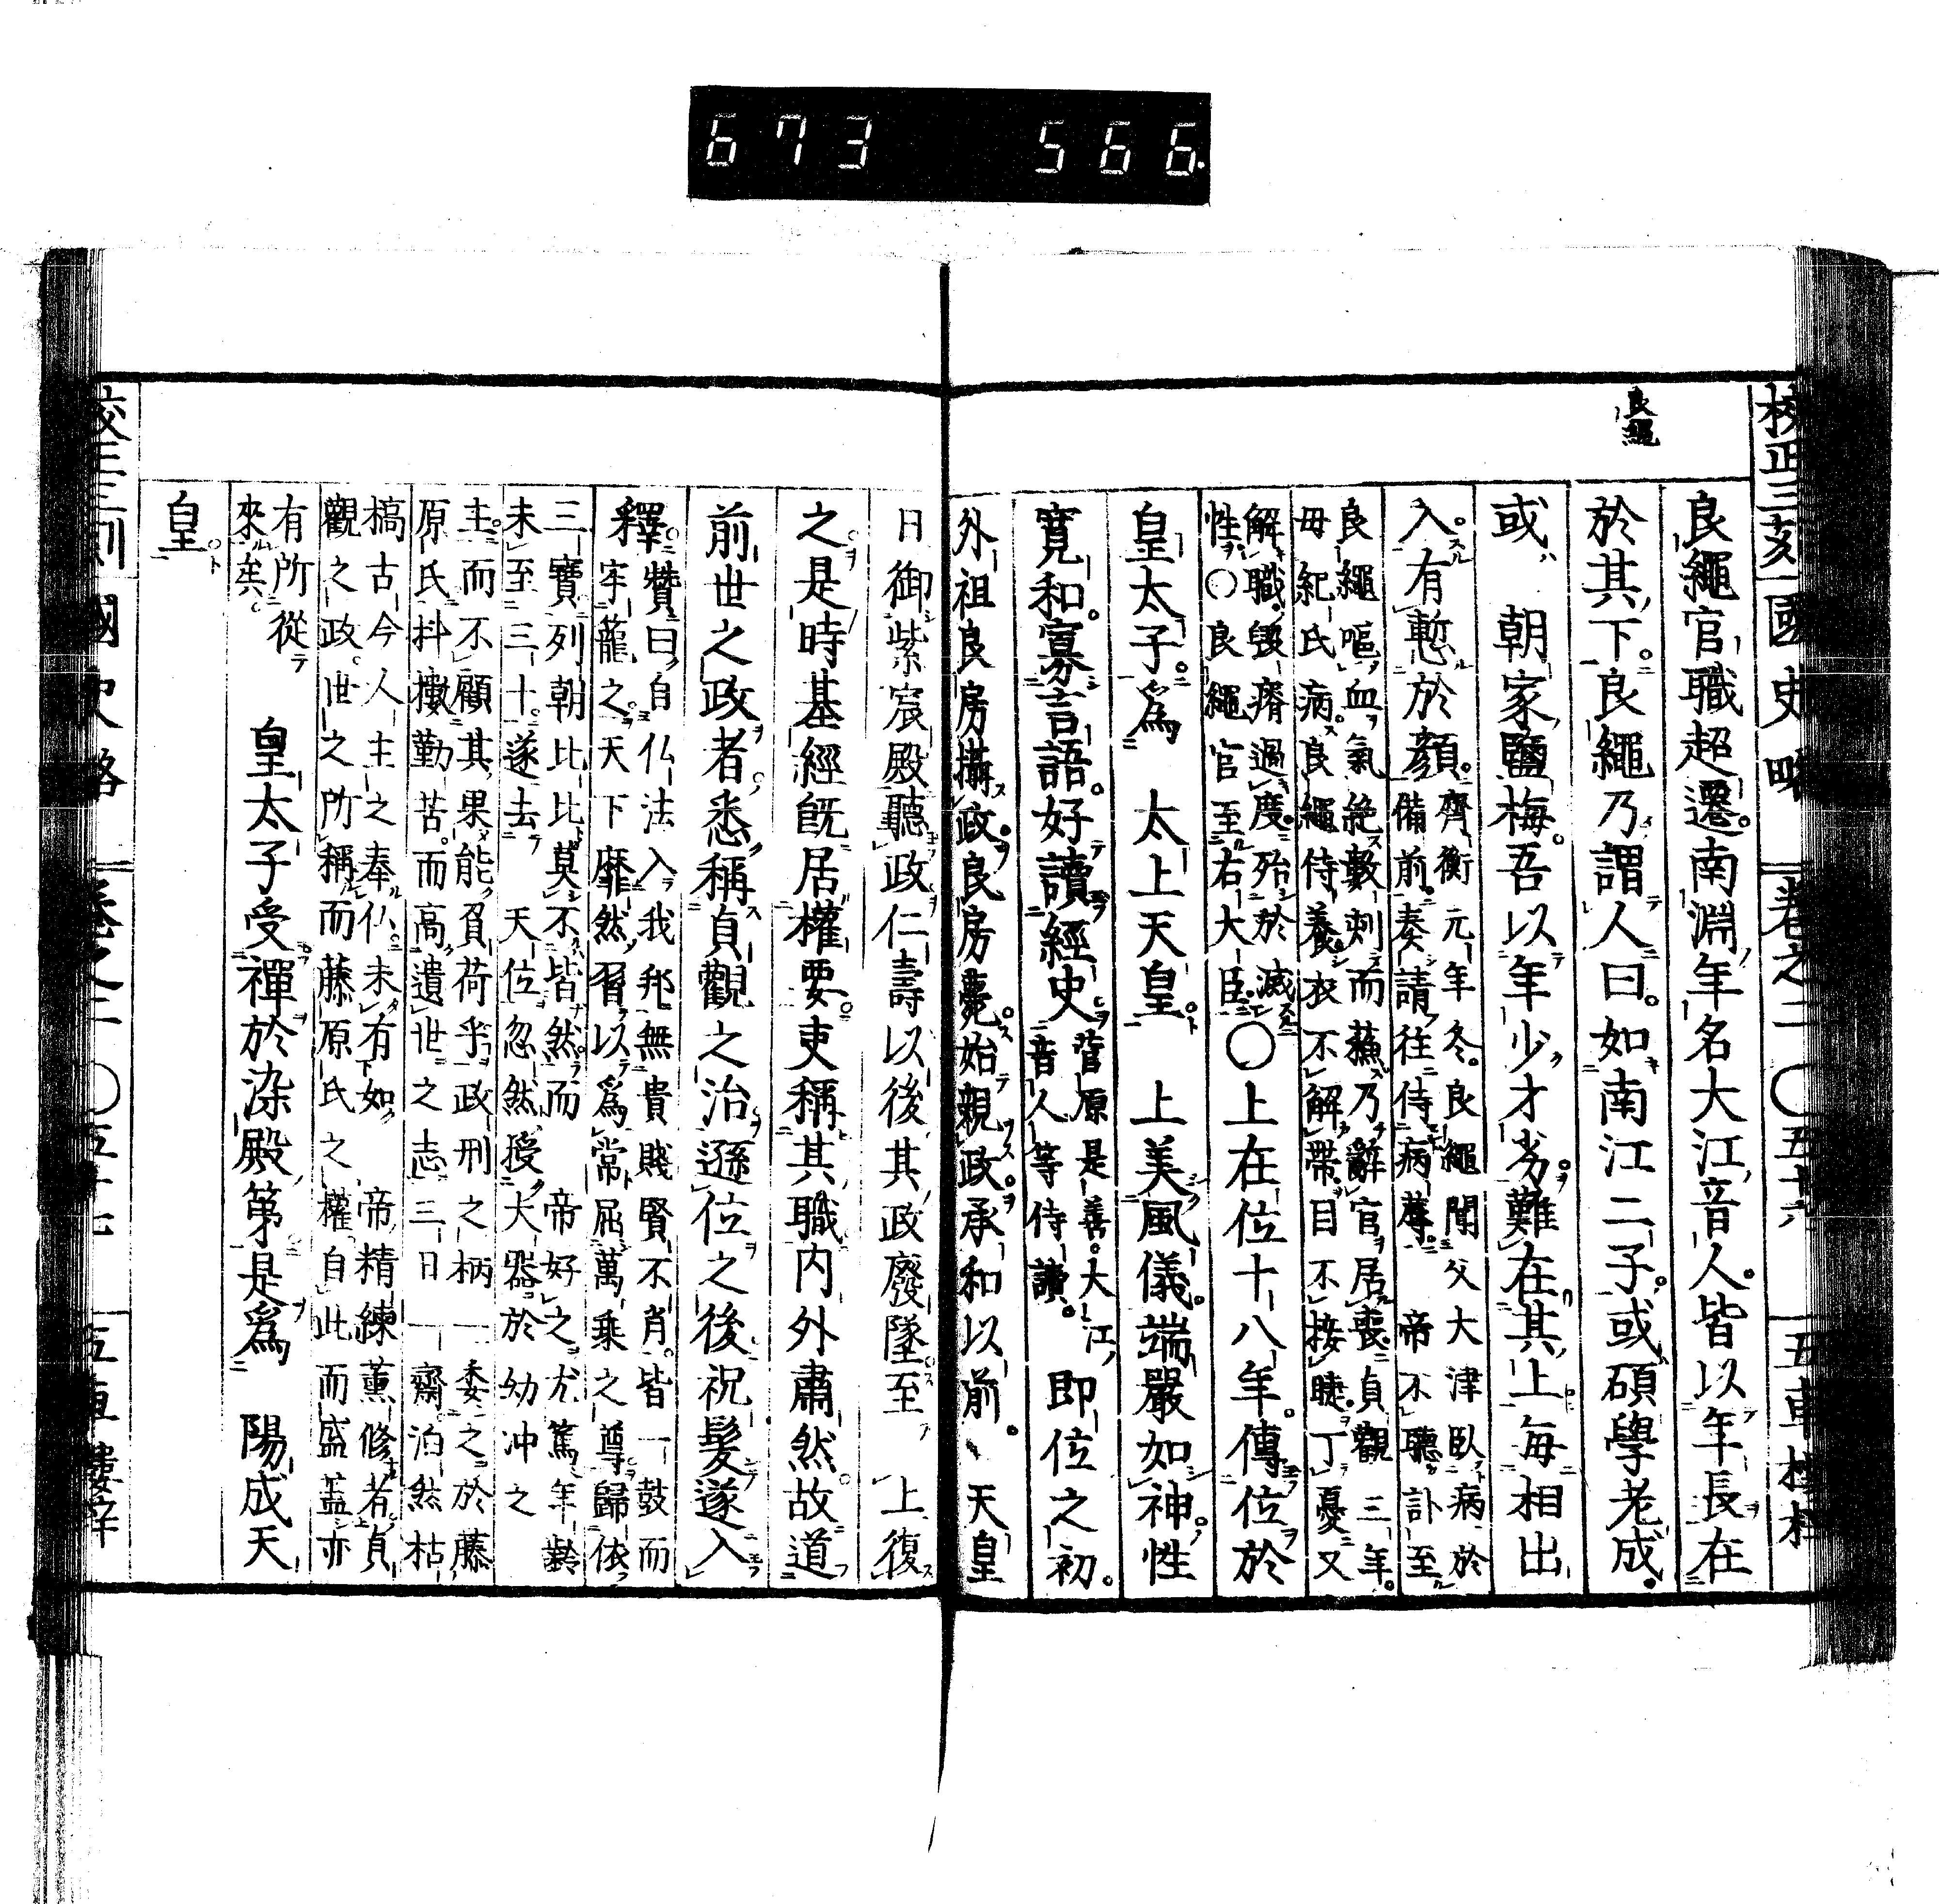 673 566
校正三刻國史略 卷之二 〇五十六 五車樓梓
良繩
良繩官職超遷。南淵年名大江音人。皆以年長在
於其下。良繩乃謂人曰。如南江二子。或碩學老成。
或 朝家鹽梅。吾以年少才劣。難在其上。每相出
入。有慙於顏。
齊衡元年冬。良繩聞父大津臥病於
備前。奏請往侍病蓐。 帝不聽。訃至
良繩嘔血氣絶。數刻而蘓。乃辭官居喪。貞觀三年。
母紀氏病。良繩侍養。衣不解帶。目不接睫。丁憂又
解職。毀瘠過度。殆於滅
性。〇良繩官至右大臣。
〇上在位十八年。傳位於
皇太子。爲 太上天皇 上美風儀。端嚴如神。性
寬和。寡言語。好讀經史
菅原是善。大江
音人等侍讀。
即位之初。
外祖良房攝政。良房薨。始親政。承和以前。天皇
日御紫宸殿聽政仁壽以後其政廢墜至 上復
之是時基經旣居權要。吏稱其職內外肅然。故道
前世之政者。悉稱貞觀之治遜位之後祝髮遂入
釋。
贊曰。自仏法入我邦無貴賤賢不肖。皆一鼓而
牢籠之。天下靡然。習以爲常。屈萬乘之尊。歸依
三寶。列朝比比莫不皆然。而 帝好之尤篤。年齡
未至三十。遂去 天位。忽然授大器於幼冲之
主。而不顧其果能負荷乎。政刑之柄。一委之於藤
原氏。抖擻勤苦。而高遺世之志。三日一齋。泊然枯
槁。古今人主之奉仏。未有如 帝精練薰修者。貞
觀之政。世之所稱。而藤原氏之權。自此而盛。盖亦
有所從
來矣。
皇太子受禪於染殿第。是爲 陽成天
皇。
國史略 卷之二 〇五十七 五車樓梓